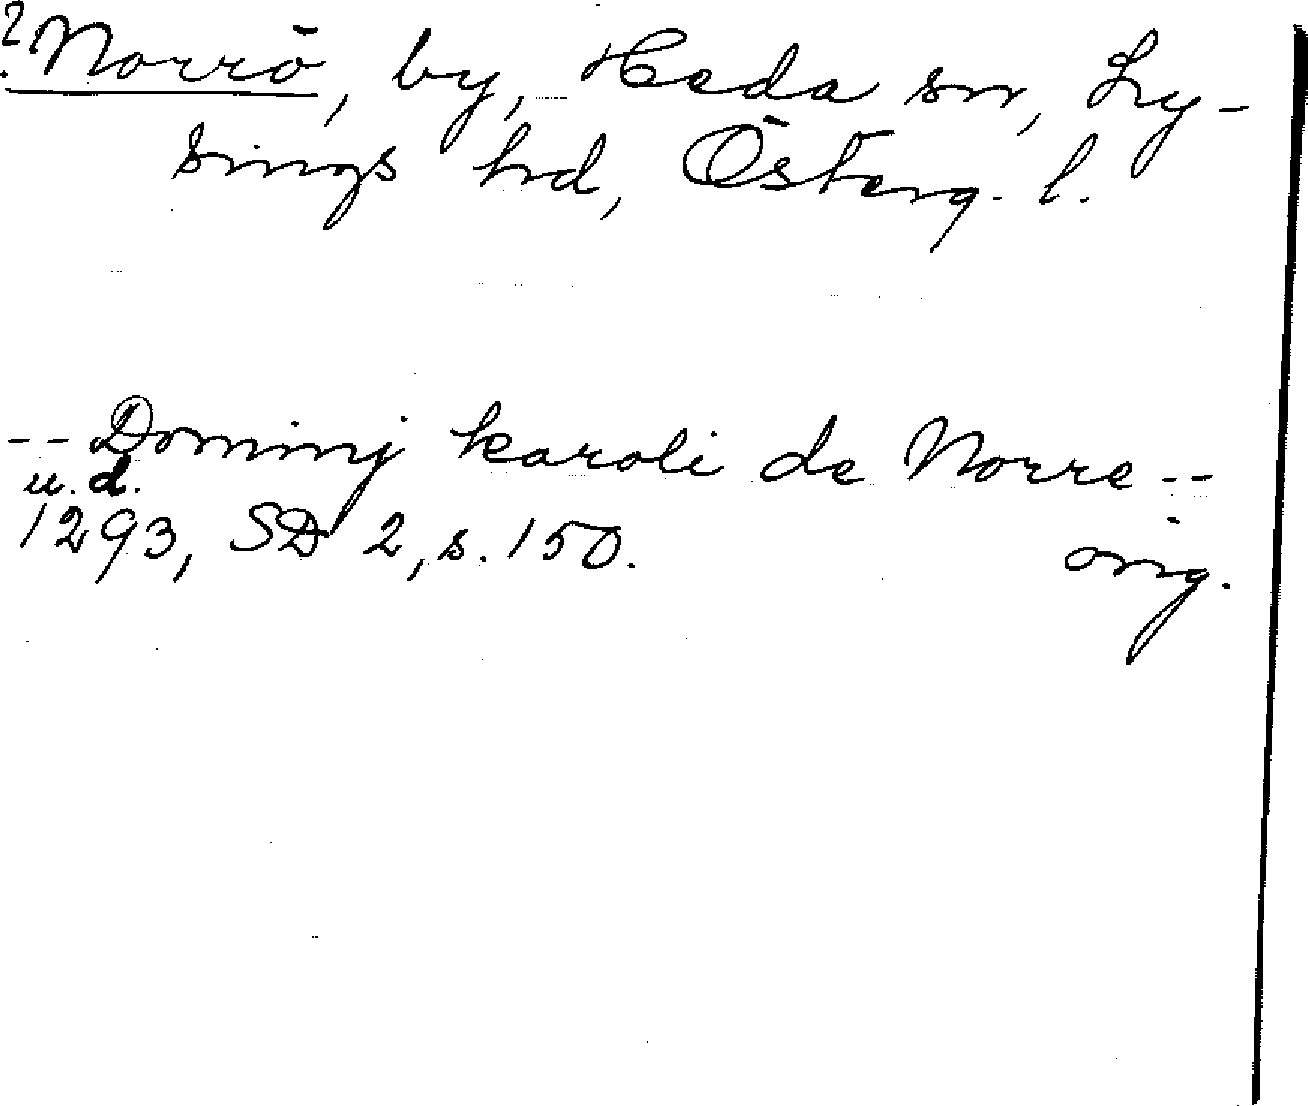 ? Norrö, by, Heda sn, Ly-
sings hd, Österg. l.
-- Dominj karoli de Norre --
u.d.
1293, SD 2, s. 150. orig.